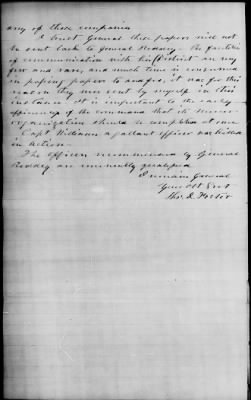 any of these companies
I trust General these papers will not
be sent back to General Roddey. The facilities
of communication with his District are very
few and rare, and much time is consumed
in passing papers to and fro, it was for this
reason they were sent by myself in this
instance. It is important to the early
efficiency of the command that its
organization should be completed at once
Capt. Williams a gallant officer was killed
in action.
The officers recommended by General
Roddey are eminently qualified
I remain General
Your Obt Svt
Tho. J. Foster